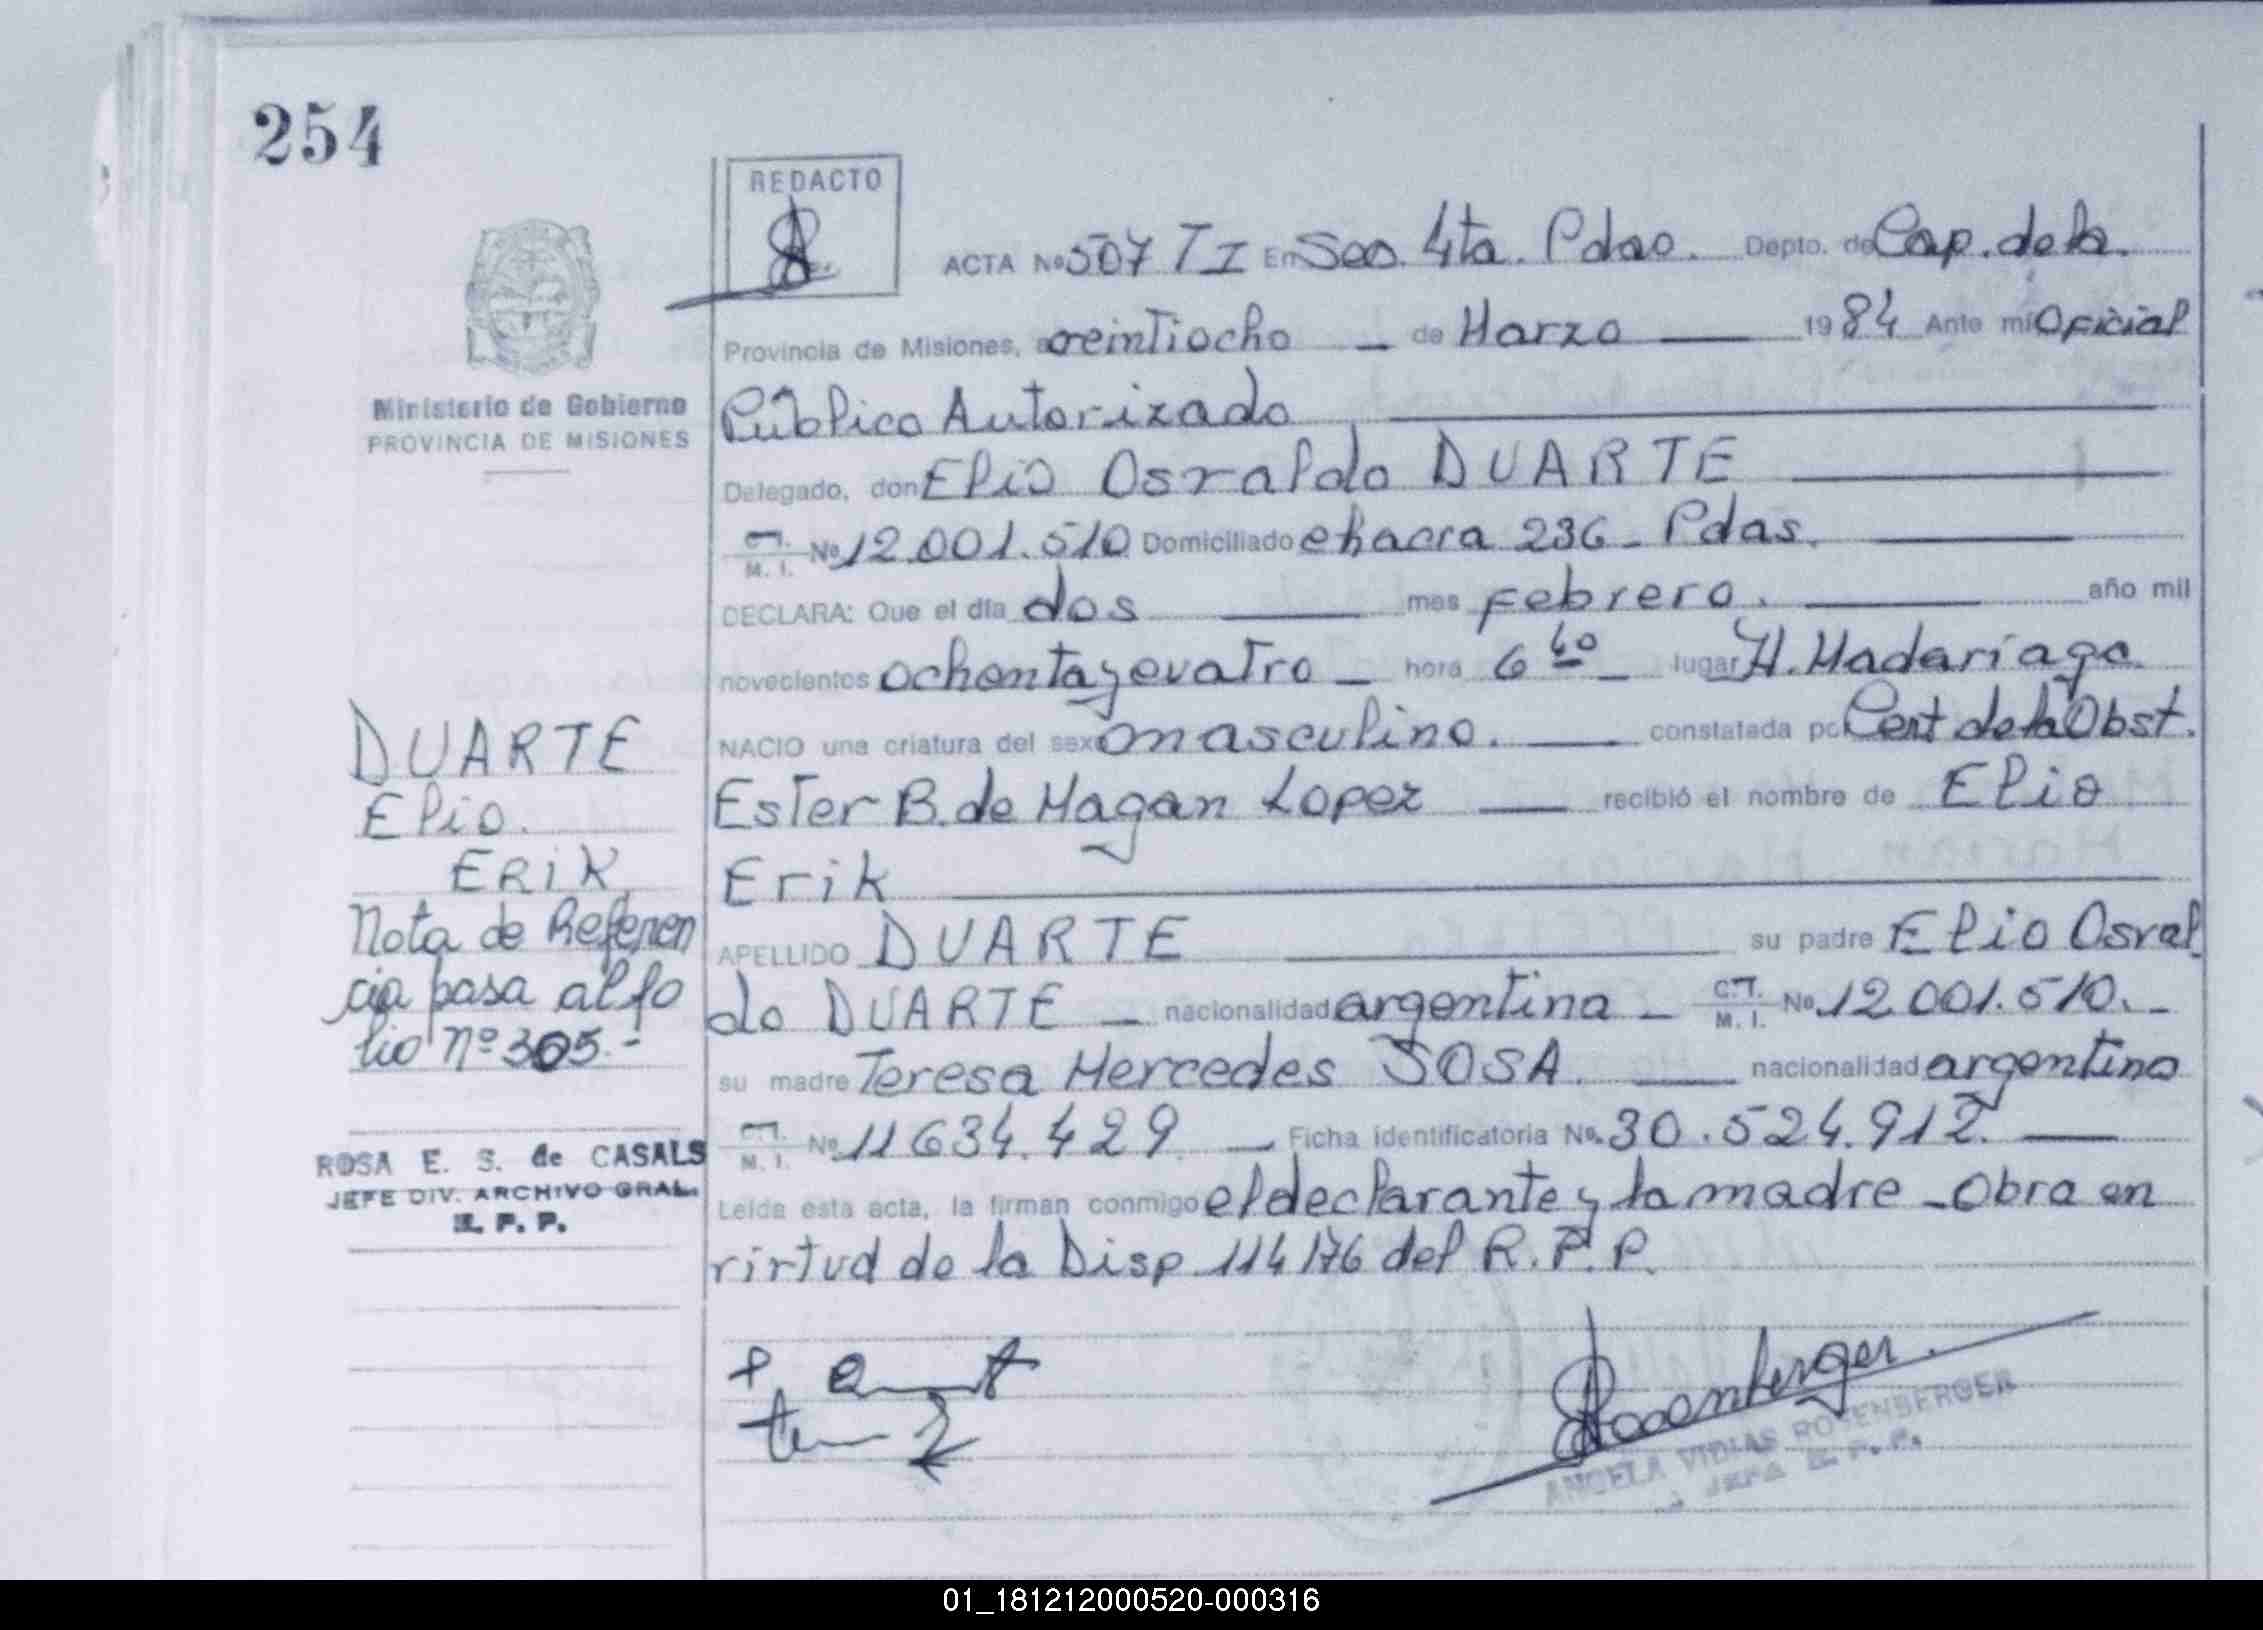 254
REDACTO
ACTA Nº 507 TI En Sec. 4ta. Pdas. Depto. de Cap. de la
Provincia de Misiones, a veintiocho — de Marzo — 19 84 Ante mí Oficial
Público Autorizado
Delegado, don Elio Osvaldo DUARTE
C.I. M. I. Nº 12.001.510 Domiciliado chacra 236 - Pdas.
DECLARA: Que el día dos — mes febrero. — año mil
novecientos ochenta y cuatro — hora 6 40 — lugar H. Madariaga.
NACIO una criatura del sexo masculino. — constatada por Cert de la Obst.
Ester B. de Magan Lopez — recibió el nombre de Elio
Erik
APELLIDO DUARTE — su padre Elio Osval
do DUARTE — nacionalidad argentina — C.I. M. I. Nº 12.001.510. -
su madre Teresa Mercedes SOSA. — nacionalidad argentina
C.I. M. I. Nº 11634.429. — Ficha identificatoria Nº. 30.524.912. —
Leída esta acta, la firman conmigo el declarante y la madre - Obra en
virtud de la Disp 114/76 del R.P.P.
Ministerio de Gobierno
PROVINCIA DE MISIONES
DUARTE
Elio.
ERIK
Nota de Referen
cia pasa al fo
lio nº 305.-
ROSA E. S. de CASALS
JEFE DIV. ARCHIVO GRAL.
R. P. P.
Rosenberger
ANGELA VIDLAS ROSENBERGER
JEFA R. P. P.
01_181212000520-000316